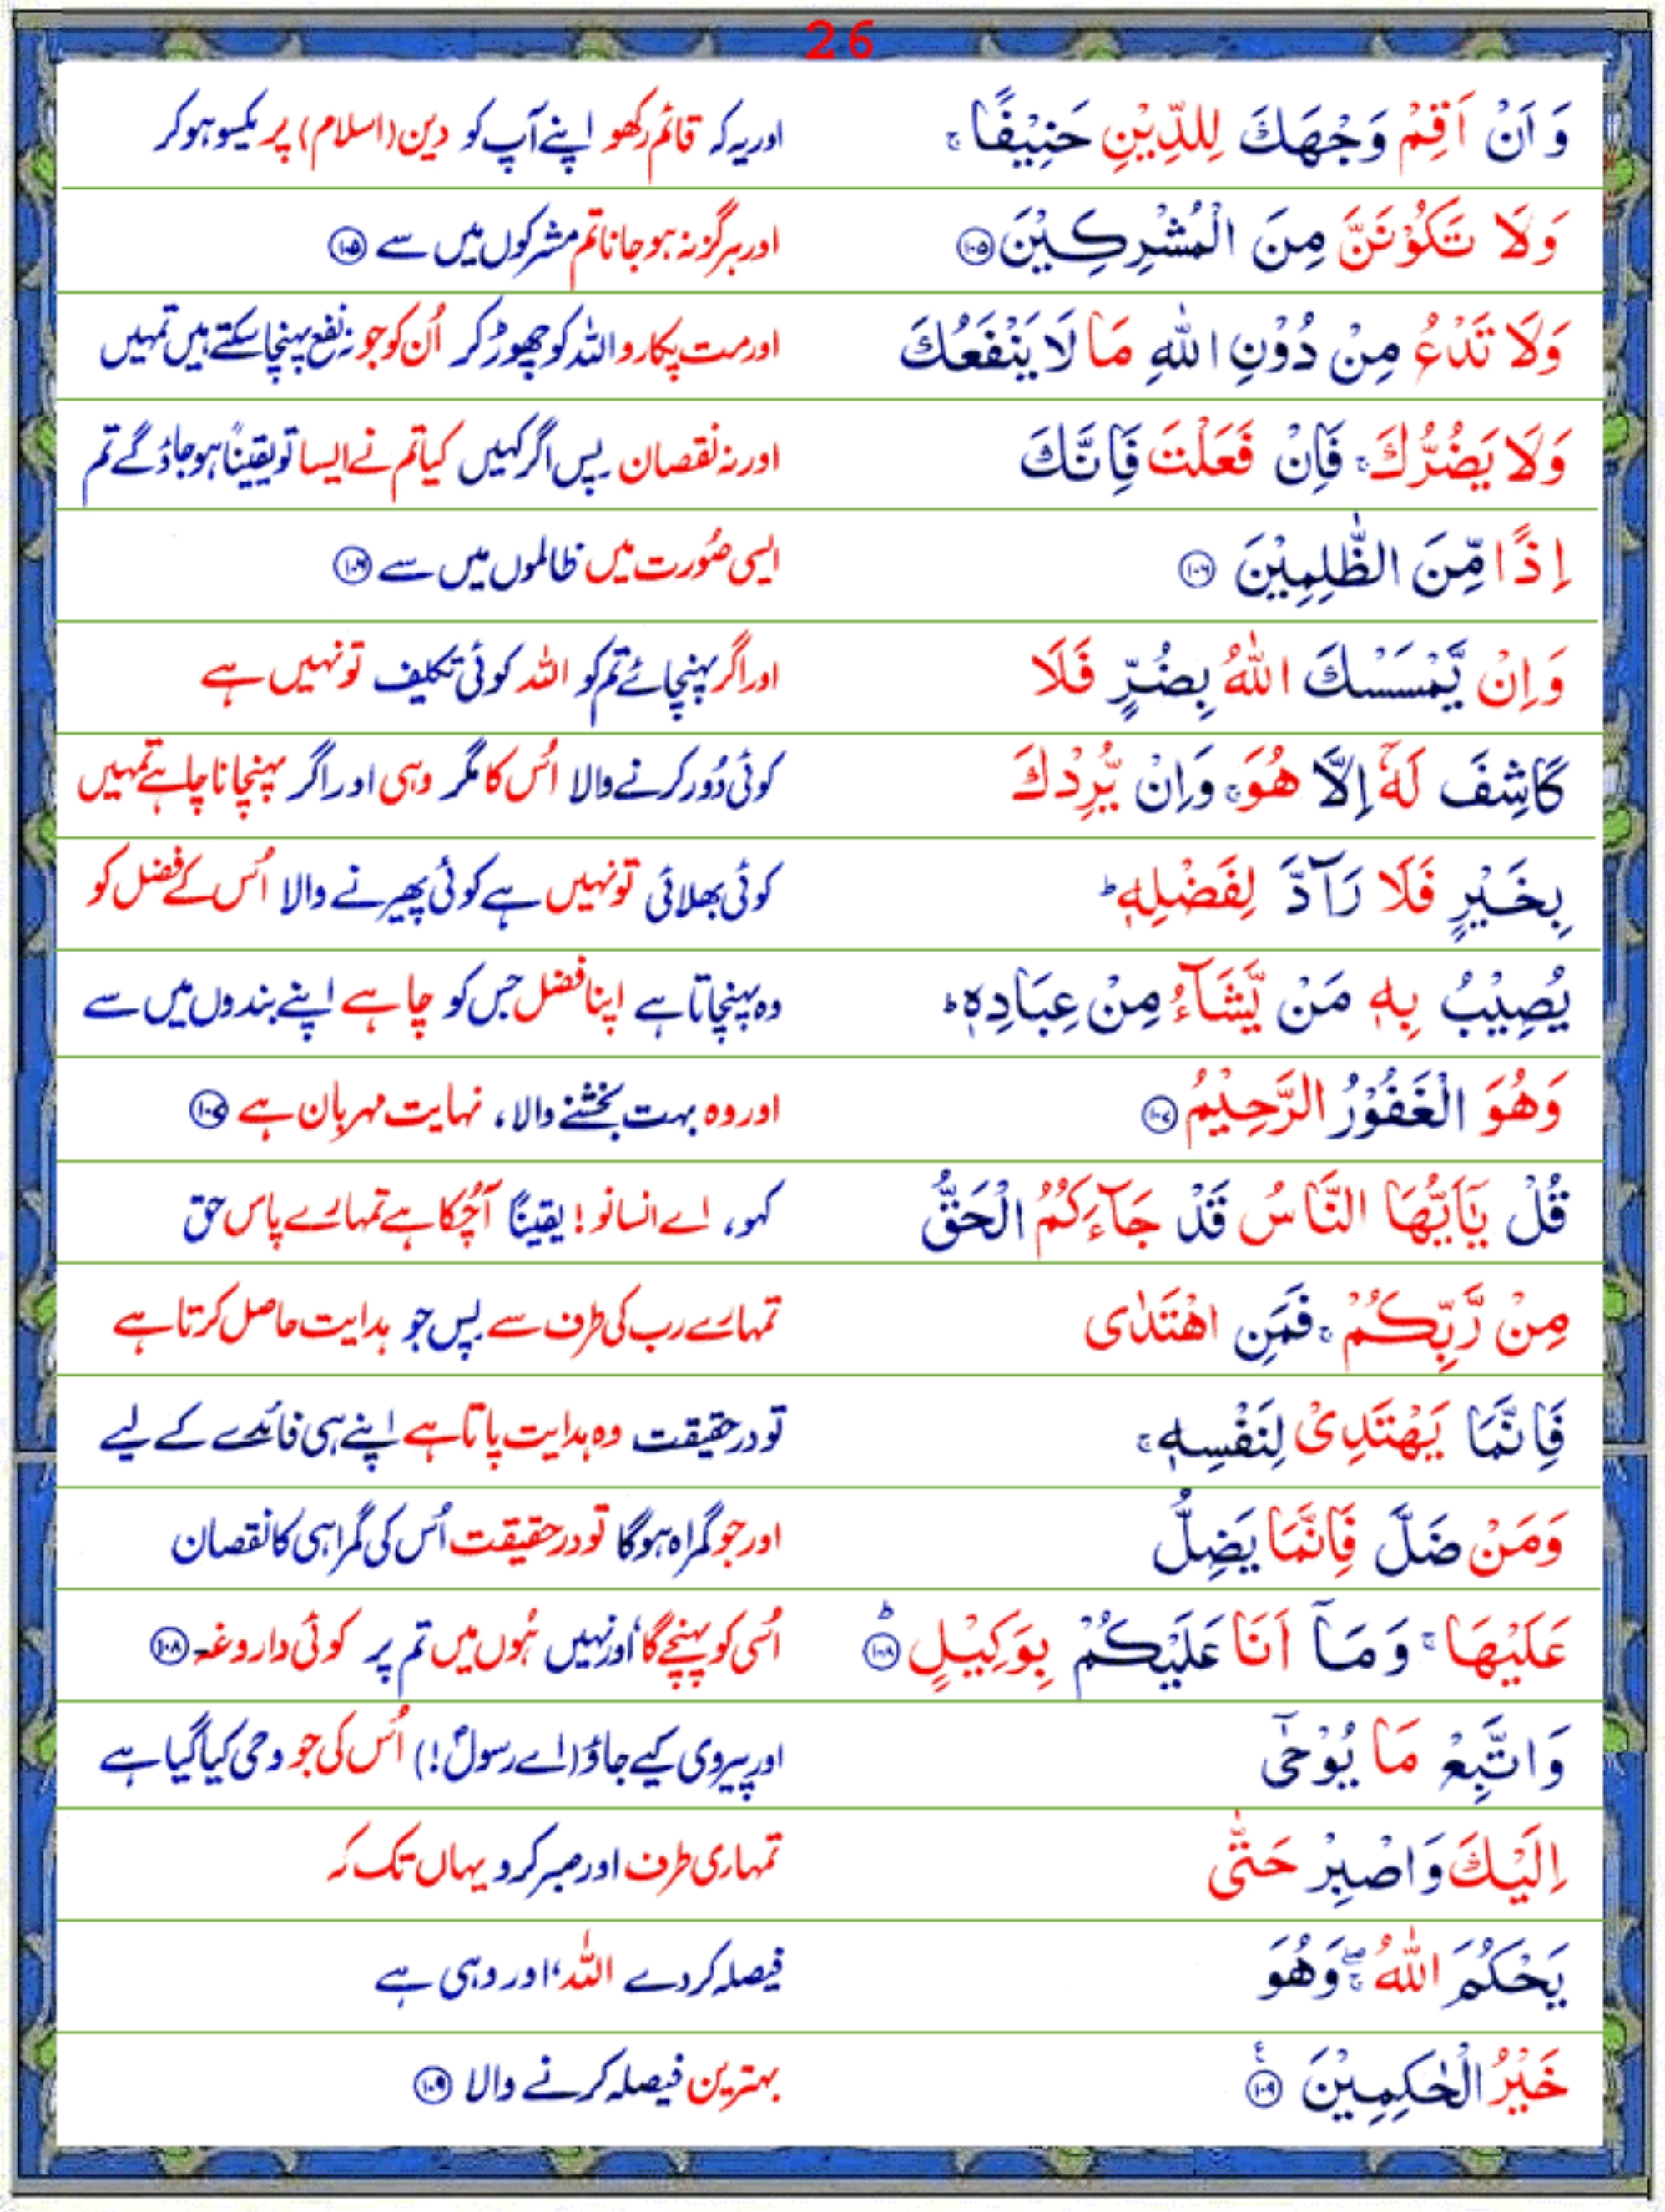 26
وَ اَنْ اَقِمْ وَجْهَكَ لِلدِّيْنِ حَنِيْفًا ۚ اور یہ کہ قائم رکھو اپنے آپ کو دین (اسلام) پر یکسو ہو کر
وَلَا تَكُوْنَنَّ مِنَ الْمُشْرِكِيْنَ ۝۱۰۵ اور ہرگز نہ ہو جانا تم مشرکوں میں سے ۝۱۰۵
وَلَا تَدْعُ مِنْ دُوْنِ اللّٰهِ مَا لَا يَنْفَعُكَ اور مت پکارو اللہ کو چھوڑ کر اُن کو جو نہ نفع پہنچا سکتے ہیں تمہیں
وَلَا يَضُرُّكَ ۚ فَاِنْ فَعَلْتَ فَاِنَّكَ اور نہ نقصان پس اگر کہیں کیا تم نے ایسا تو یقیناً ہو جاؤ گے تم
اِذًا مِّنَ الظّٰلِمِيْنَ ۝۱۰۶ ایسی صُورت میں ظالموں میں سے ۝۱۰۶
وَاِنْ يَّمْسَسْكَ اللّٰهُ بِضُرٍّ فَلَا اور اگر پہنچائے تم کو اللہ کوئی تکلیف تو نہیں ہے
كَاشِفَ لَهٗۤ اِلَّا هُوَ ۚ وَاِنْ يُّرِدْكَ کوئی دُور کرنے والا اُس کا مگر وہی اور اگر پہنچانا چاہے تمہیں
بِخَيْرٍ فَلَا رَآدَّ لِفَضْلِهٖ ؕ کوئی بھلائی تو نہیں ہے کوئی پھیرنے والا اُس کے فضل کو
يُصِيْبُ بِهٖ مَنْ يَّشَآءُ مِنْ عِبَادِهٖ ؕ وہ پہنچاتا ہے اپنا فضل جس کو چاہے اپنے بندوں میں سے
وَهُوَ الْغَفُوْرُ الرَّحِيْمُ ۝۱۰۷ اور وہ بہت بخشنے والا، نہایت مہربان ہے ۝۱۰۷
قُلْ يٰۤاَيُّهَا النَّاسُ قَدْ جَآءَكُمُ الْحَقُّ کہو، اے انسانو! یقیناً آچُکا ہے تمہارے پاس حق
مِنْ رَّبِّكُمْ ۚ فَمَنِ اهْتَدٰى تمہارے رب کی طرف سے پس جو ہدایت حاصل کرتا ہے
فَاِنَّمَا يَهْتَدِيْ لِنَفْسِهٖ ۚ تو درحقیقت وہ ہدایت پاتا ہے اپنے ہی فائدے کے لیے
وَمَنْ ضَلَّ فَاِنَّمَا يَضِلُّ اور جو گمراہ ہوگا تو درحقیقت اُس کی گمراہی کا نقصان
عَلَيْهَا ۚ وَمَاۤ اَنَا عَلَيْكُمْ بِوَكِيْلٍ ؕ۝۱۰۸ اُسی کو پہنچے گا، اور نہیں ہُوں میں تم پر کوئی داروغہ ۝۱۰۸
وَاتَّبِعْ مَا يُوْحٰۤى اور پیروی کیے جاؤ (اے رسولؐ!) اُس کی جو وحی کیا گیا ہے
اِلَيْكَ وَاصْبِرْ حَتّٰى تمہاری طرف اور صبر کرو یہاں تک کہ
يَحْكُمَ اللّٰهُ ۖۚ وَهُوَ فیصلہ کر دے اللہ، اور وہی ہے
خَيْرُ الْحٰكِمِيْنَ ۝۱۰۹ ع بہترین فیصلہ کرنے والا ۝۱۰۹